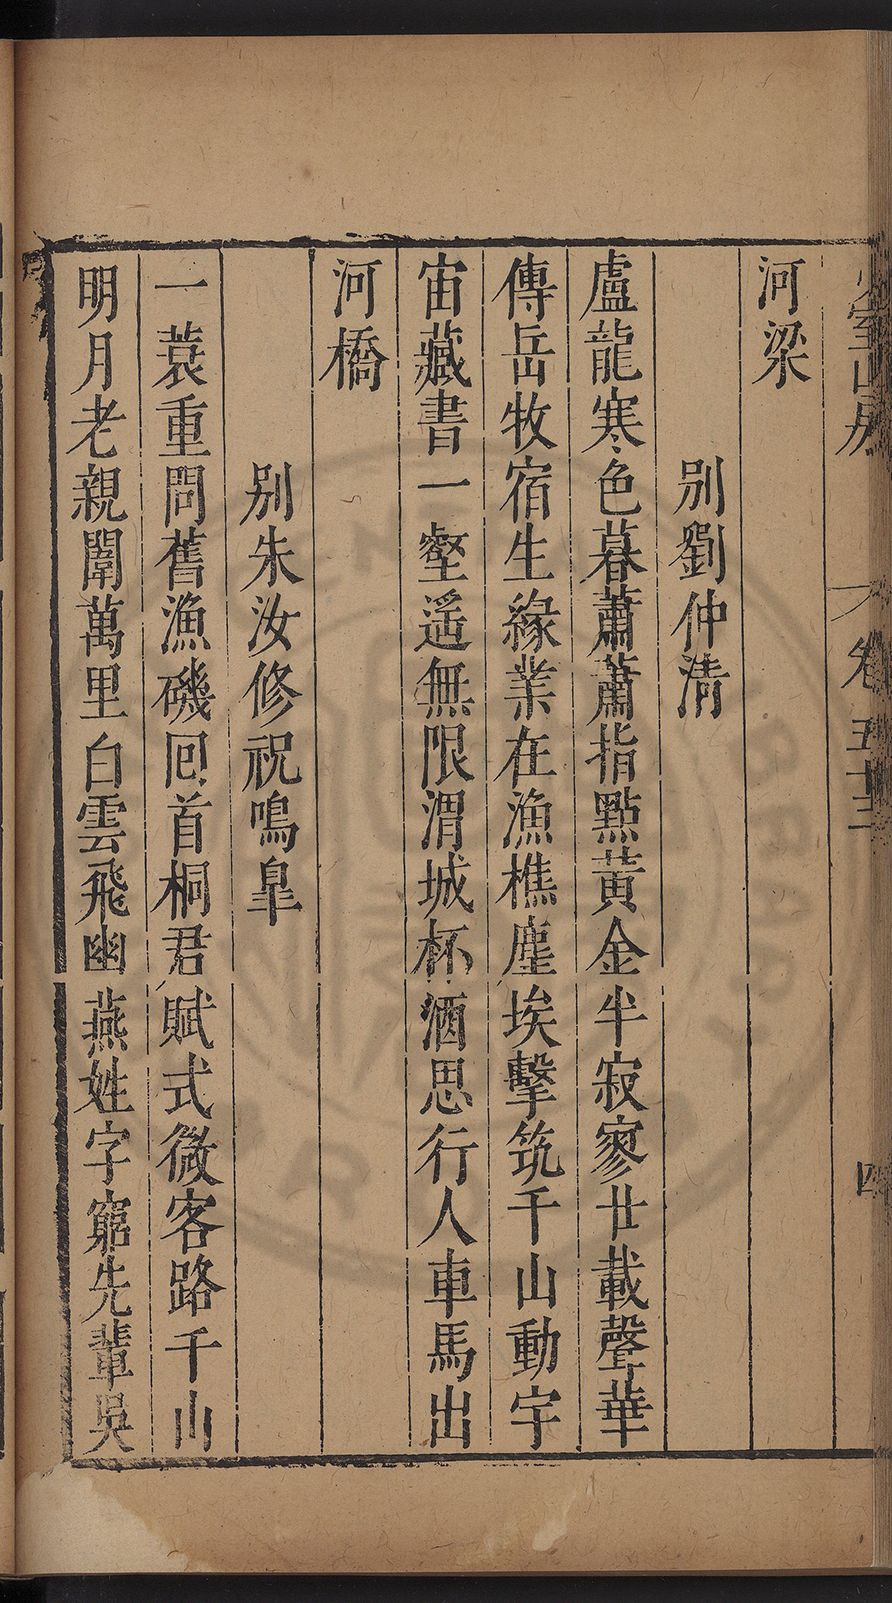 少室山房
卷五十三
四
河梁
別劉仲清
盧龍寒色暮蕭蕭指點黃金半寂寥廿載聲華
傳岳牧宿生緣業在漁樵塵埃擊筑千山動宇
宙藏書一壑遥無限渭城杯酒思行人車馬出
河橋
別朱汝修祝鳴臯
一蓑重問舊漁磯回首桐君賦式微客路千山
明月老親闈萬里白雲飛幽燕姓字窮先輩吳